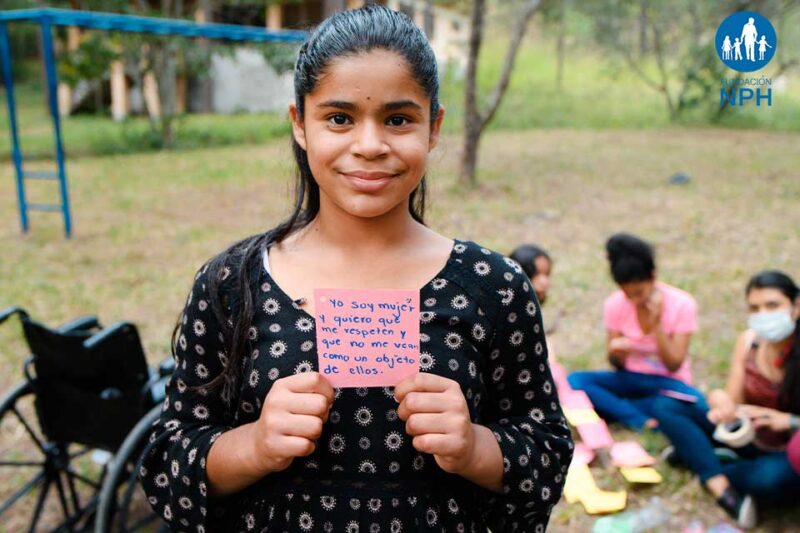 FUNDACIÓN
NPH
Yo soy mujer
y quiero que
me respeten y
que no me vean
como un objeto
de ellos.